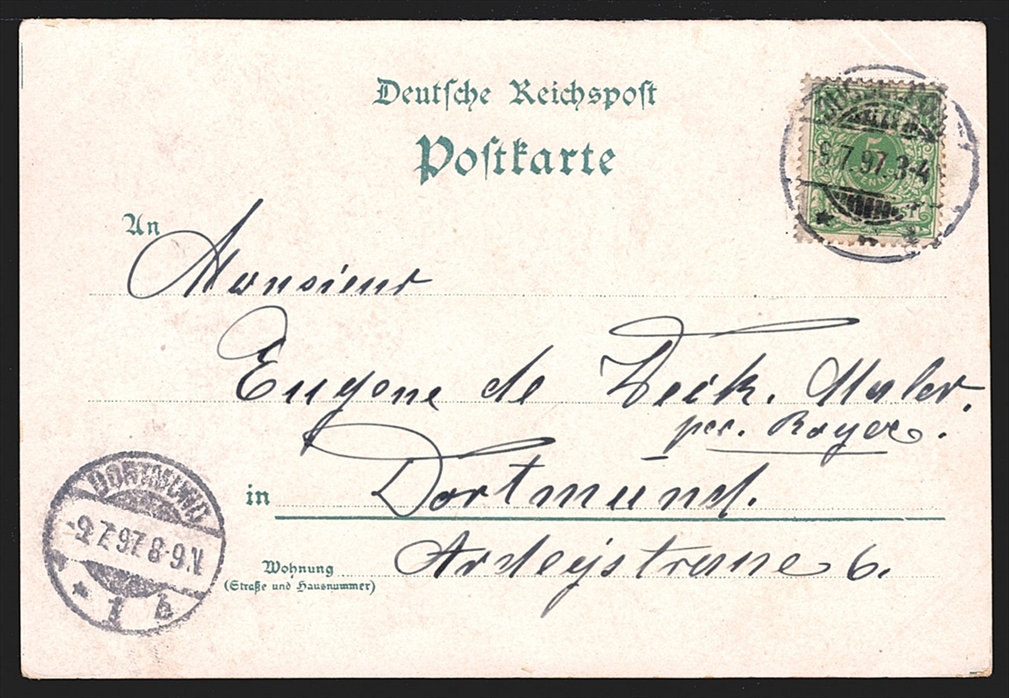 Deutsche Reichspost
Postkarte
5
-9.7.97.3-4
An
Monsieur
Eugene de
Maler.
per. Royer.
in Dortmund.
DORTMUND
-9.7.97.8-9.V.
* 1 b
Wohnung
(Straße und Hausnummer)
6.